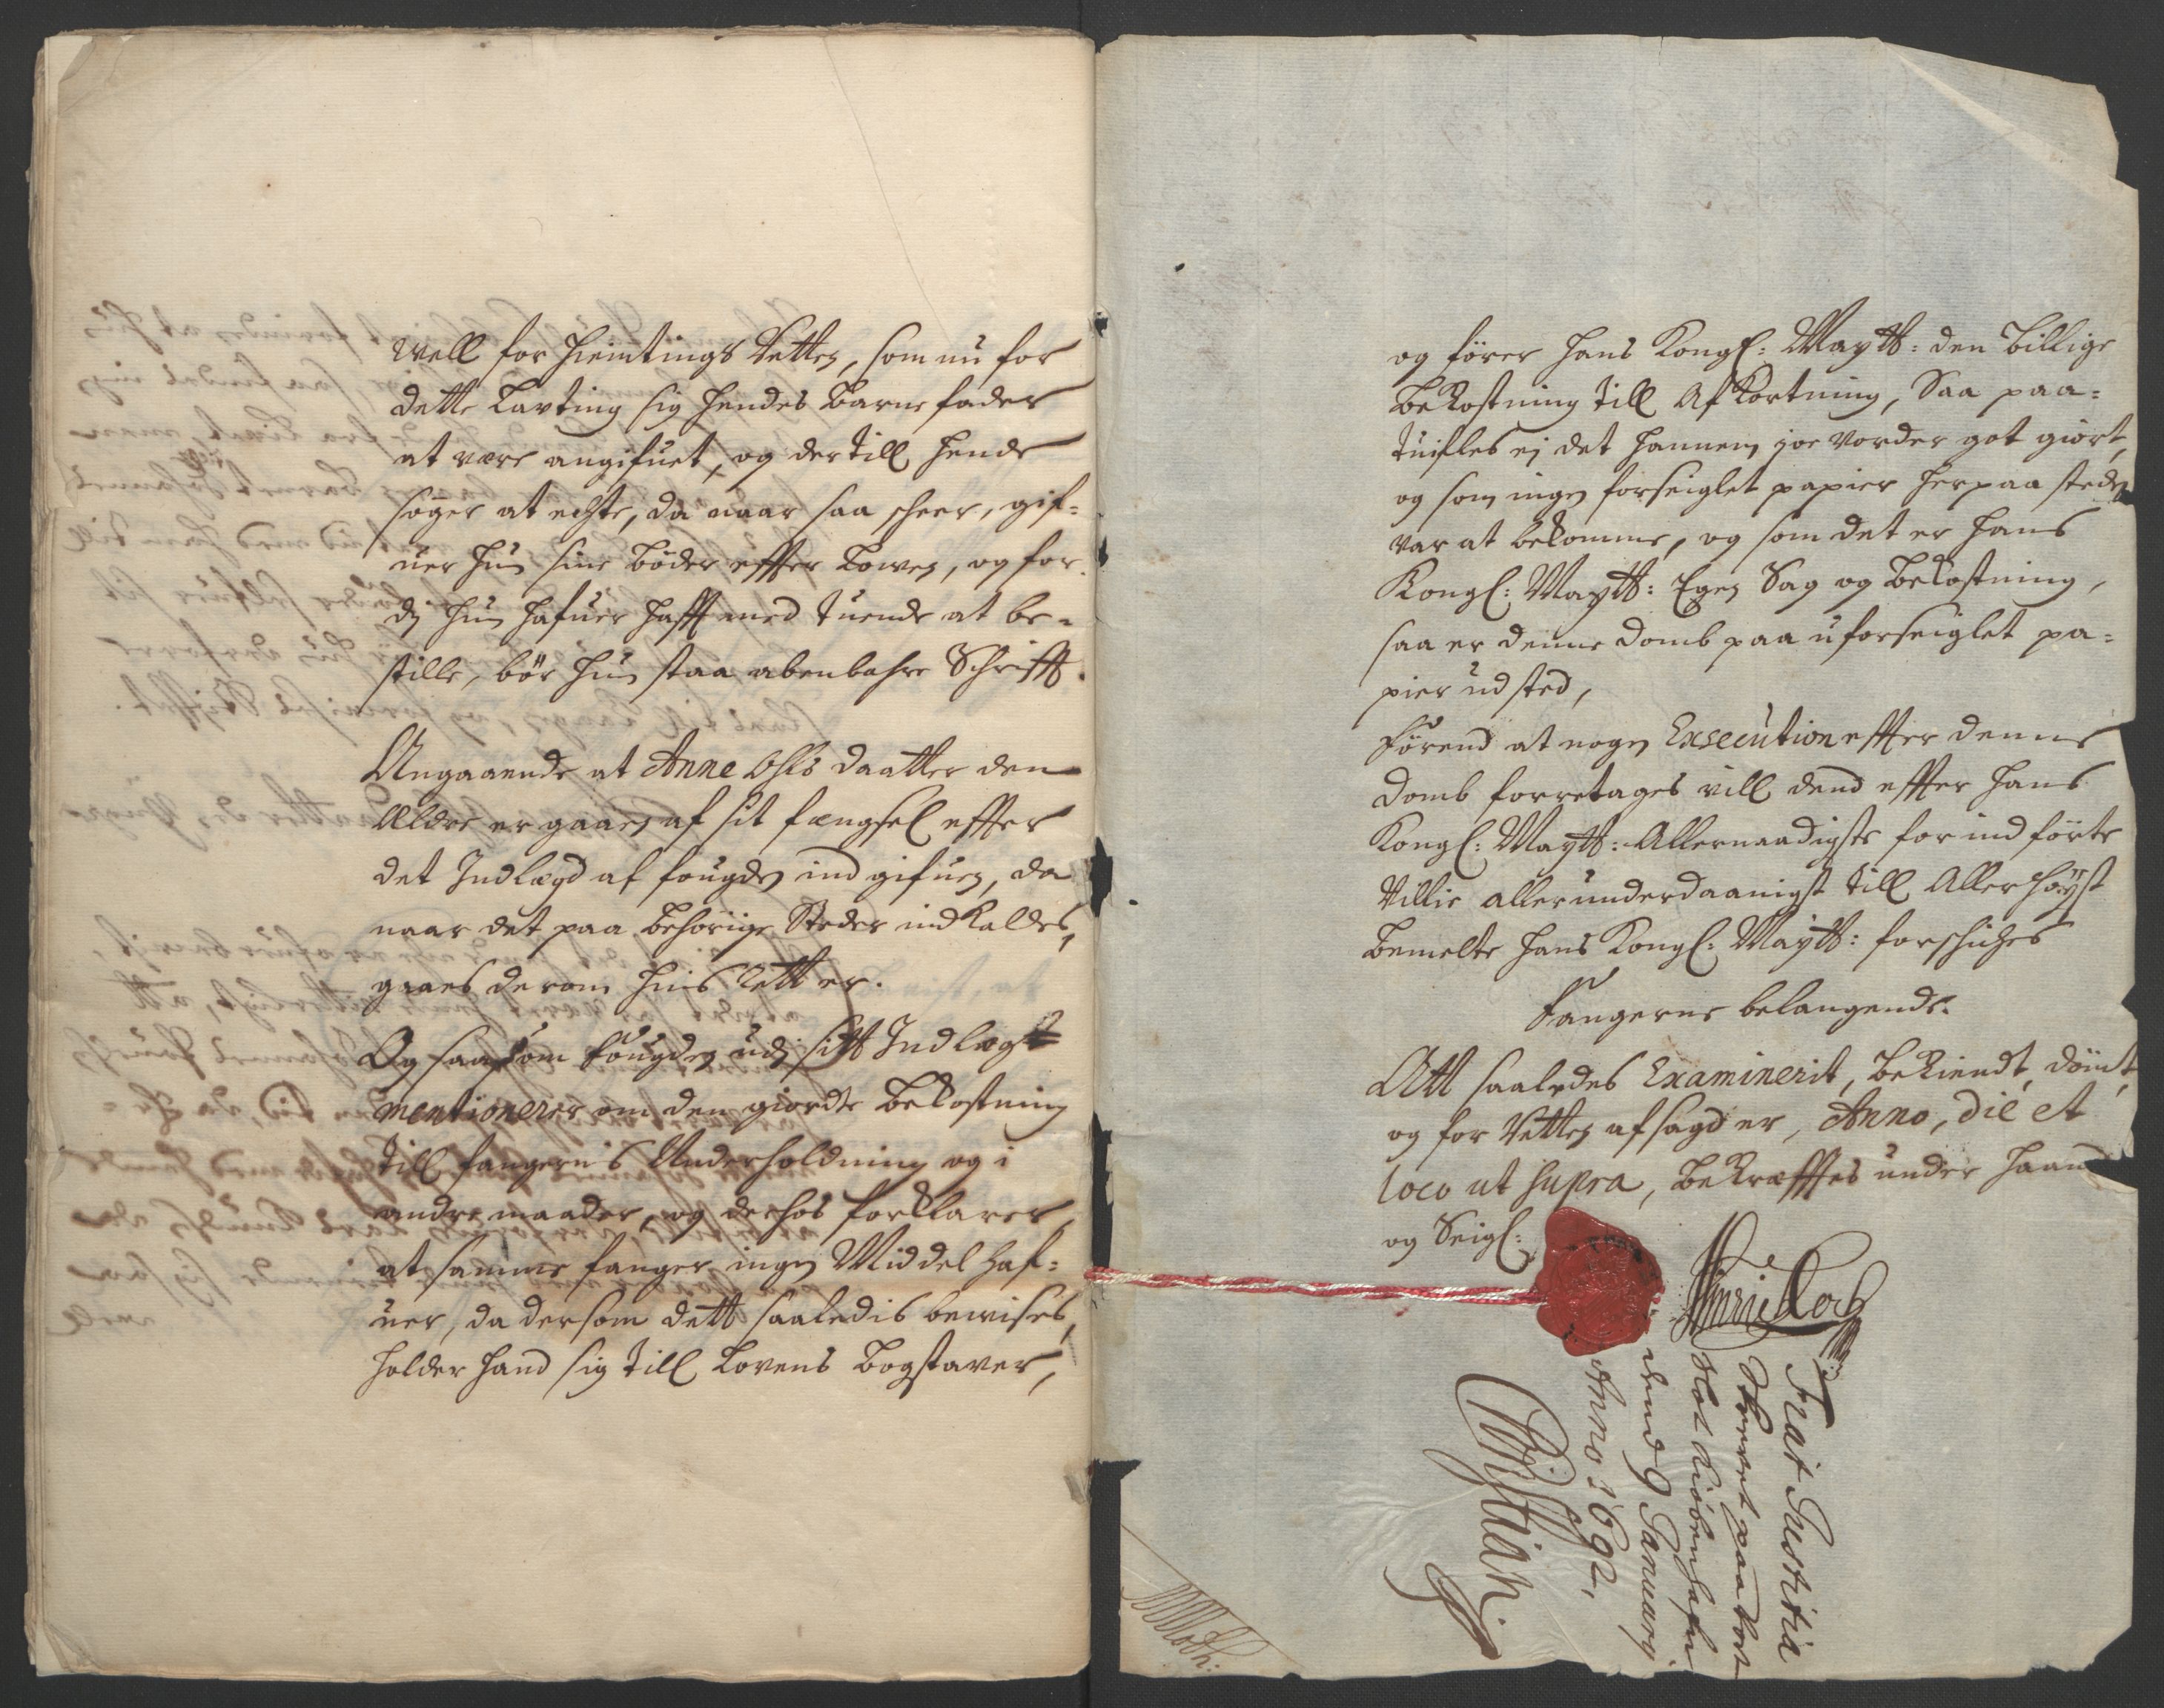 well for hiemtings Retten, som nu for
dette Lavting sig hendes Barnefader
at være angifuet, og dertill hende
søger at echte, da naar saa scheer, gif-
uer hun sine bøder effter Lowen, og for
dj hun hafuer hafft med tuende at be-
stille, bør hun staa abenbahre Schrifft.
Angaaende at Anne Olss daatter den
Ældre er gaaen af sit fængsel effter
det Indlægd af fougden ind gifuen, da
naar det paa behørige Steder indkaldes,
gaaes derom huis Rett er.
Og saasom fougden udj sitt Indlægt
mentionerer om den giorde bekostning
till fangernis Underholdning og i
andre maader, og derhos forklarer
at samme fanger ingen Middel haf-
uer, da dersom dett saaledis bewises,
holder hand sig till Lovens bogstaver,
og fører hans Kongl: Maytt: den billige
bekostning till Afkortning, Saa paa-
tuifles ej det hannem joe vorder got giort,
og som ingen forseiglet papier herpaa steden
var at bekomme, og som det er hans
Kongl: Maytt: Egen Sag og bekostning,
saa er denne domb paa uforseiglet pa-
pier ud sted,
førend at nogen Exsecution effter denne
domb forretages vill dend effter hans
Kongl: Maytt: Allernaadigste for ind førte
Villie allerunderdaanigst till Aller høyst
bemelte hans Kongl: Maytt: forschiches
fangerne belangende.
Att saaledes Examinerit, bekiendt, dømt,
og for Retten afsagd er, Anno, die et
loco ut supra, bekræfftes under haand
og Seigl:
Fiat Justitia
Skrevet paa vort
Slot Kiøbenhafn
dend 9 January
Anno 1692.
Christian
Moth: